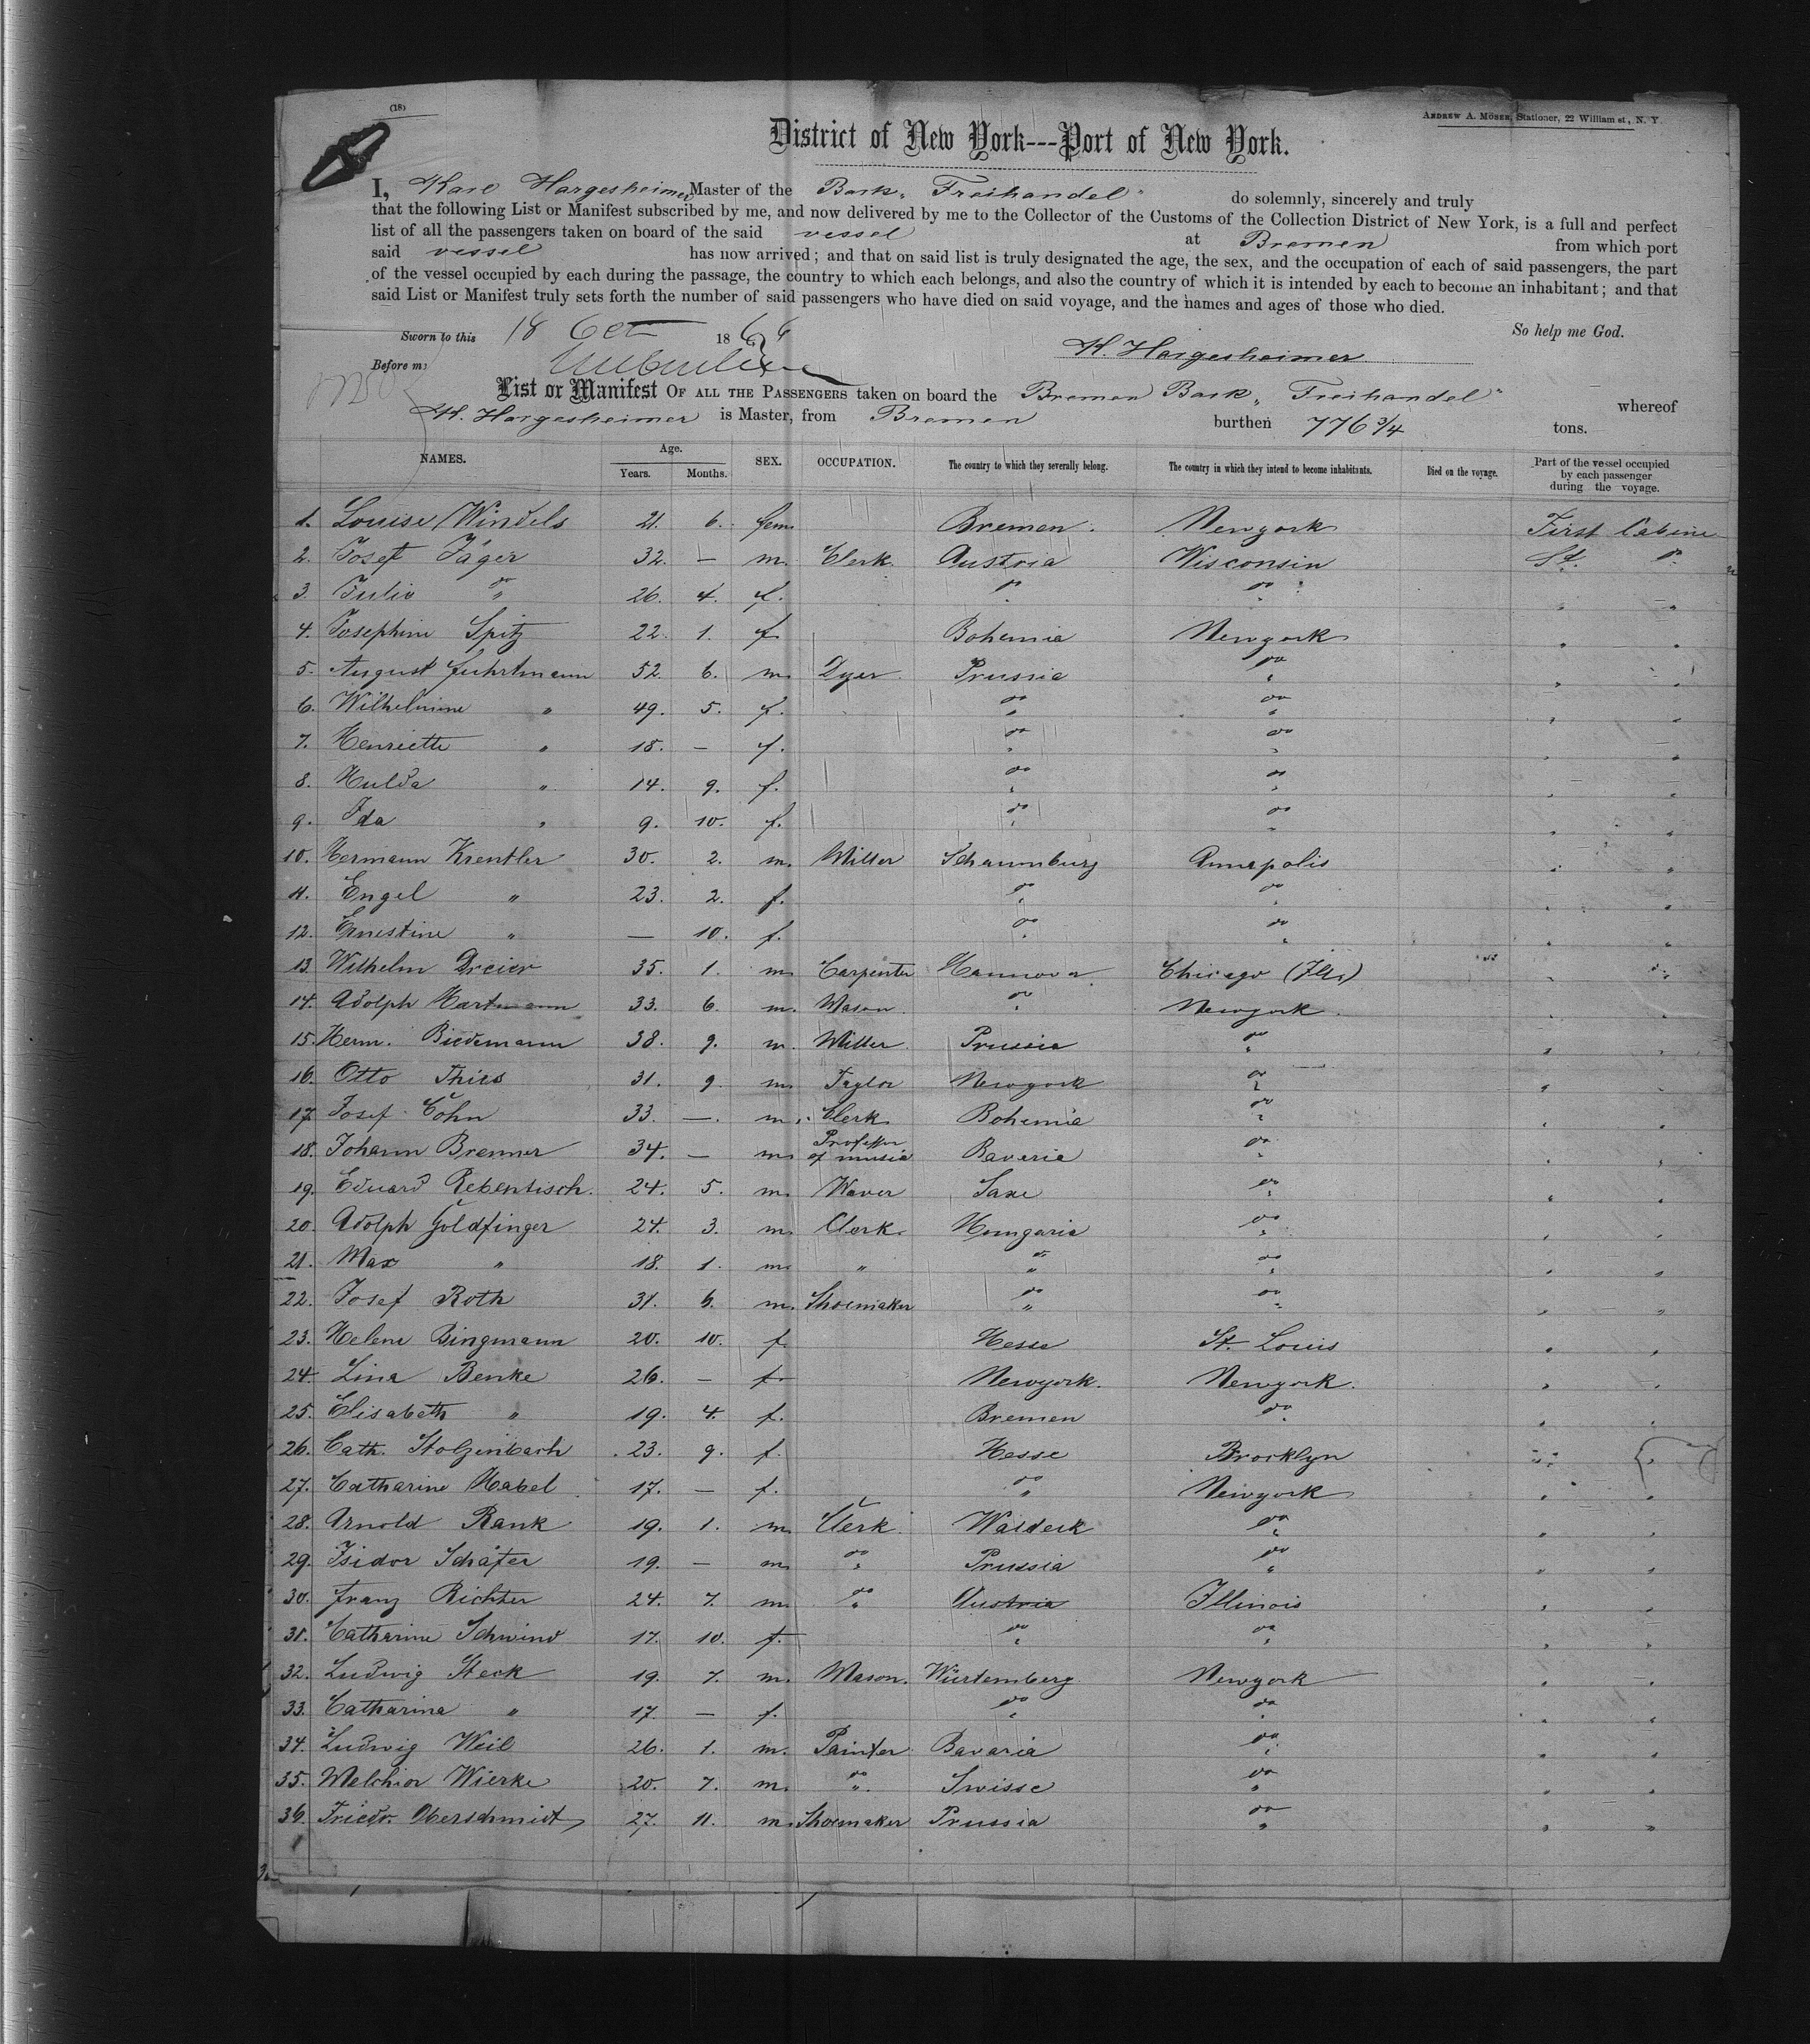 (18)
ANDREW A. MÖSER, Stationer, 22 William st, N. Y.
District of New York---Port of New York.
I, Karl Hargesheimer Master of the Bark „Freihandel" do solemnly, sincerely and truly
that the following List or Manifest subscribed by me, and now delivered by me to the Collector of the Customs of the Collection District of New York, is a full and perfect
list of all the passengers taken on board of the said vessel at Bremen from which port
said vessel has now arrived; and that on said list is truly designated the age, the sex, and the occupation of each of said passengers, the part
of the vessel occupied by each during the passage, the country to which each belongs, and also the country of which it is intended by each to become an inhabitant; and that
said List or Manifest truly sets forth the number of said passengers who have died on said voyage, and the names and ages of those who died.
Sworn to this 18 Oct 1866 So help me God.
Before me K. Hargesheimer
List or Manifest OF ALL THE PASSENGERS taken on board the Bremen Bark „Freihandel" whereof
K. Hargesheimer is Master, from Bremen burthen 776 3/4 tons.
NAMES. Age. Years. Months. SEX. OCCUPATION. The country to which they severally belong. The country in which they intend to become inhabitants. Died on the voyage. Part of the vessel occupied by each passenger during the voyage.
1. Louise Windels 21. 6. fem. Bremen. Newyork First Cabine
2. Josef Jäger 32. — m. Clerk. Austria Wisconsin Sd. do
3. Julie do " 26. 4. f. do do " "
4. Josephine Spitz 22. 1. f. Bohemia Newyork " "
5. August Fuhrtmann 52. 6. m. Dyer Prussia do " "
6. Wilhelmine " 49. 5. f. do do " "
7. Henriette " 18. — f. do do " "
8. Hulda " 14. 9. f. do do " "
9. Ida " 9. 10. f. do do " "
10. Hermann Krentler 30. 2. m. Miller Schaumburg Annapolis " "
11. Engel " 23. 2. f. do do " "
12. Ernestine " — 10. f. do do " "
13. Wilhelm Dreier 35. 1. m. Carpenter Hannover Chicago (Ills) " "
14. Adolph Hartmann 33. 6. m. Mason. do Newyork. " "
15. Herm. Biedemann 38. 9. m. Miller. Prussia do " "
16. Otto Thies 31. 9. m. Taylor Newyork do " "
17. Josef Cohn 33. — m. Clerk Bohemia do " "
18. Johann Brenner 34. — m. Professor of musia Bavaria do " "
19. Eduard Rebentisch. 24. 5. m. Waver Saxe do " "
20. Adolph Goldfinger 24. 3. m. Clerk. Hungaria do " "
21. Max " 18. 1. m. " do do " "
22. Josef Roth 31. 6. m. Shoemaker do do " "
23. Helene Bingmann 20. 10. f. Hesse St. Louis " "
24. Lina Benke 26. — f. Newyork. Newyork. " "
25. Elisabeth " 19. 4. f. Bremen do " "
26. Cath. Stolzenbach 23. 9. f. Hesse Brooklyn " "
27. Catharine Habel 17. — f. do Newyork " "
28. Arnold Rank 19. 1. m. Clerk Waldeck do " "
29. Isidor Schäfer 19. — m. do Prussia do " "
30. Franz Richter 24. 7. m. do Austria Illinois " "
31. Catharine Schwind 17. 10. f. do do " "
32. Ludwig Heck 19. 7. m. Mason. Würtemberg Newyork " "
33. Catharina " 17. — f. do do " "
34. Ludwig Weil 26. 1. m. Painter Bavaria do " "
35. Melchior Wierke 20. 7. m. do Swisse do " "
36. Friedr. Oberschmidt 27. 11. m. Shoemaker Prussia do " "